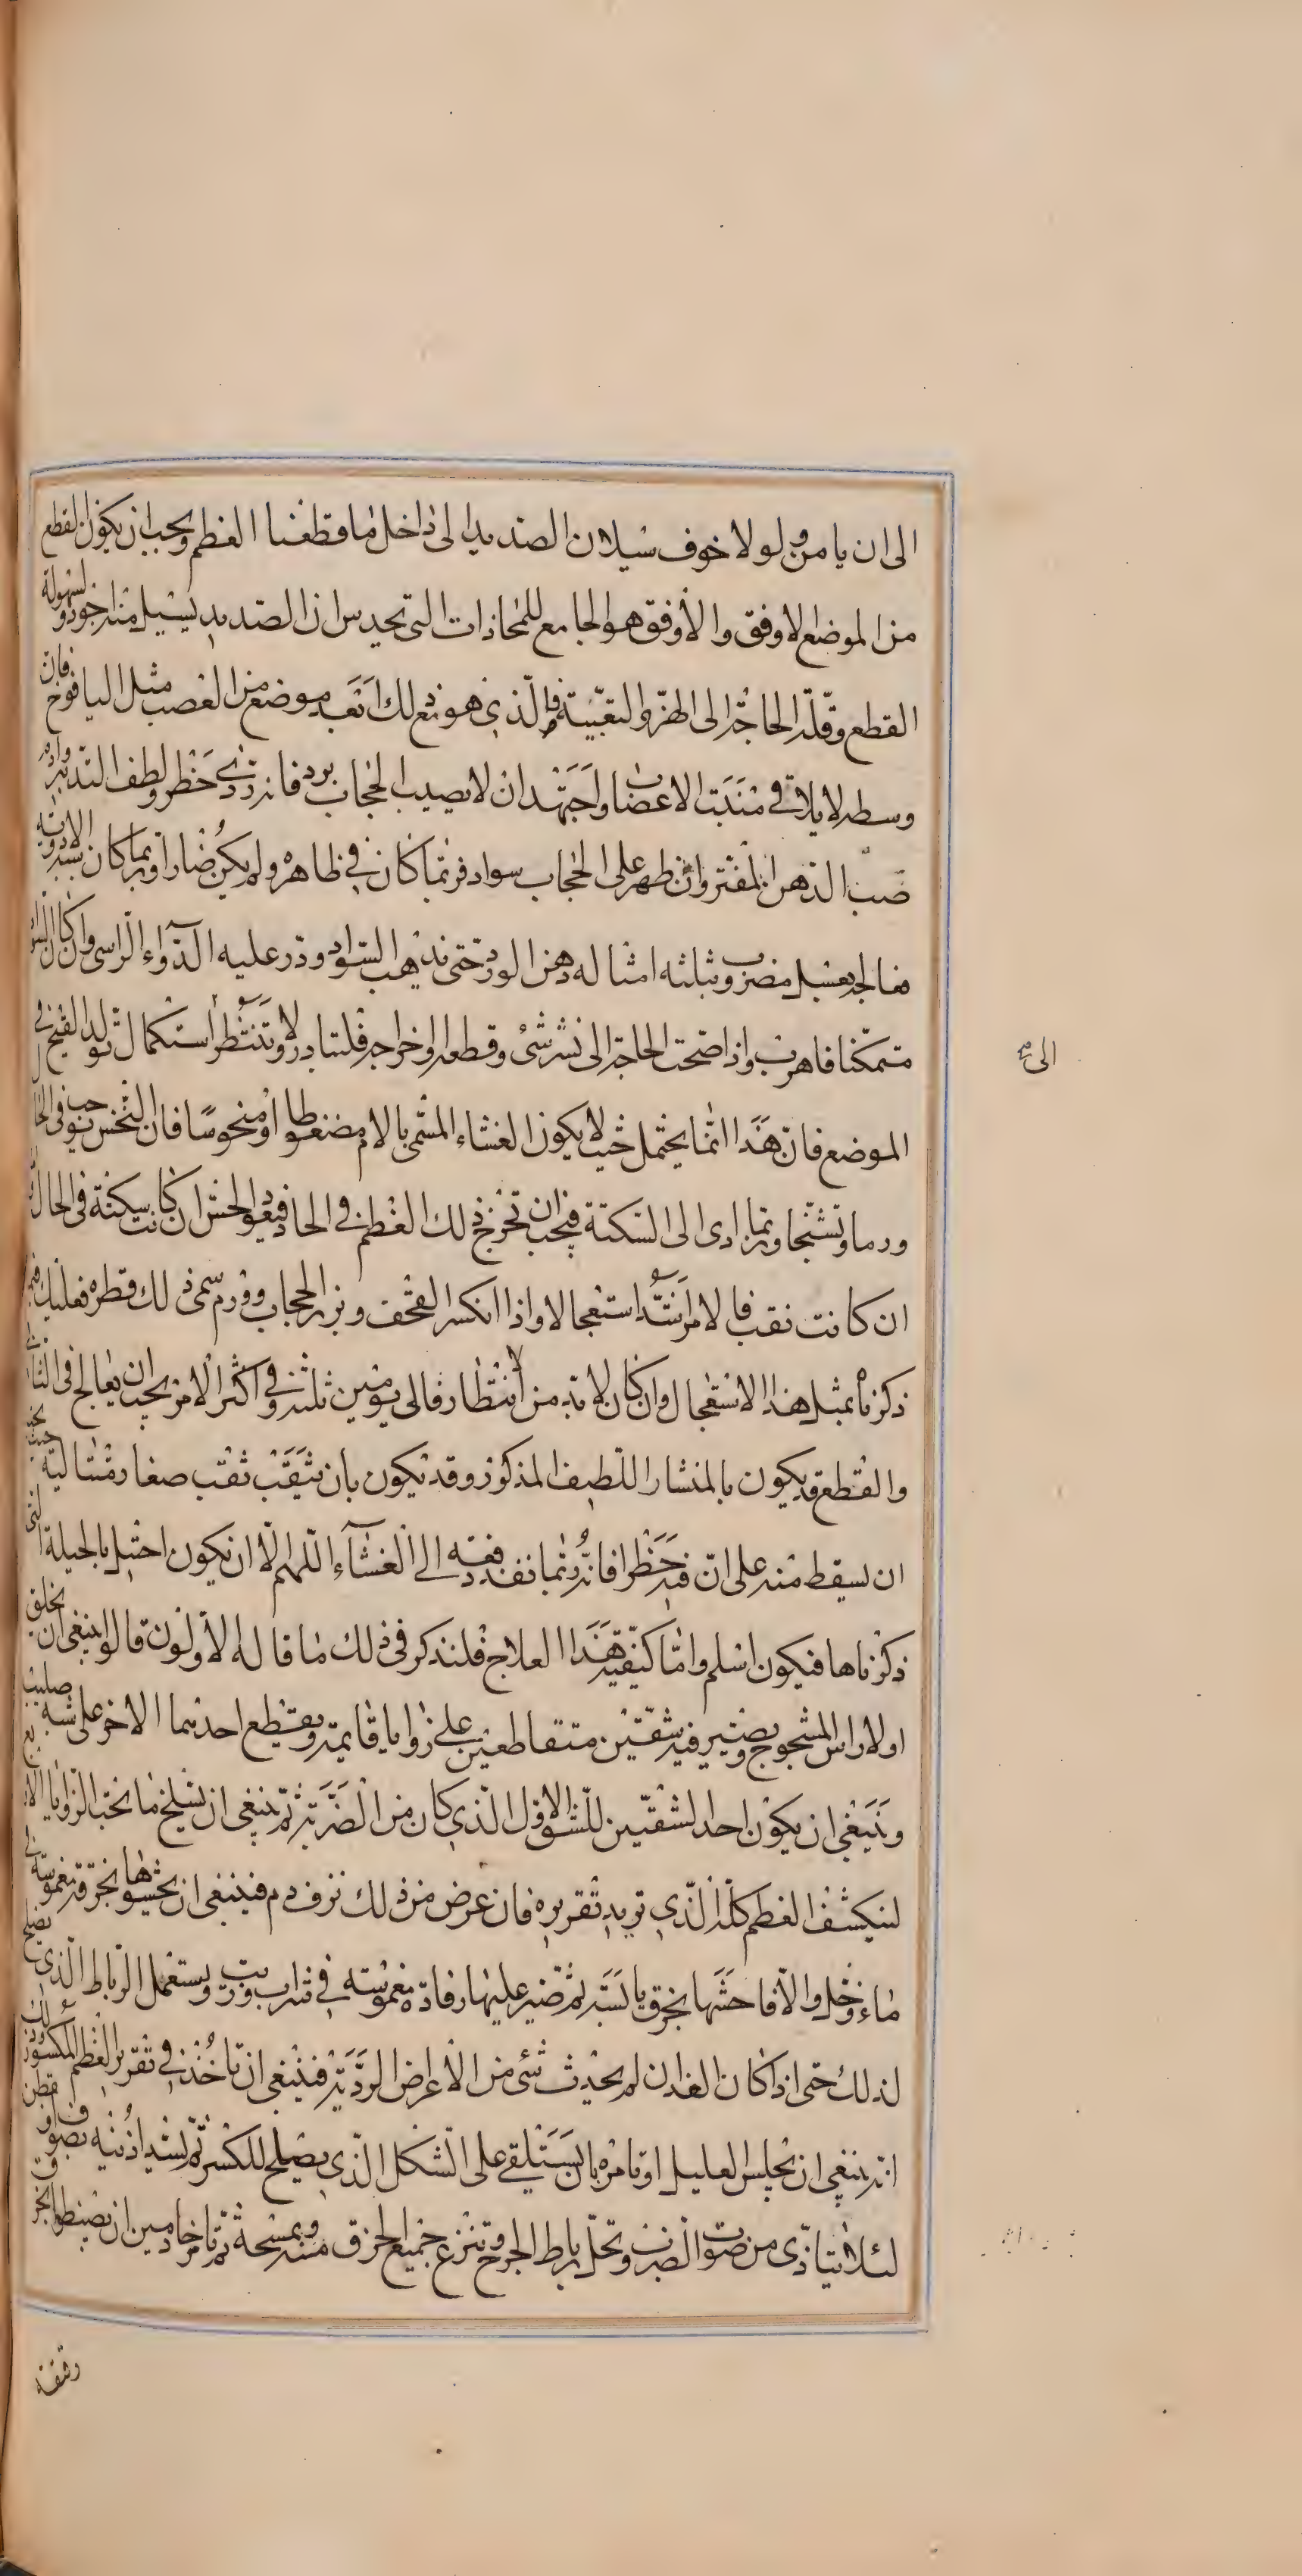 الى ان يامن ولو لا خوف سيلان الصديد الى داخل ما قطعنا العظم ويجب ان يكون القطع
من الموضع الاوفق والأوفق هو الجامع للمحاذات التى يحدس ان الصديد يسيل منه اجود ولسهولة
القطع وقلة الحاجة الى الهز والتعبية فالذي هو مع ذلك ابعد موضع من العصب مثل اليافوخ فان
وسطه لا يلاقي منبت الاعصاب واجتهد ان لا يصيب الحجاب برد فانه ردي خطر ولطف التدبير وادم
صب الدهن المفتر وان ظهر على الحجاب سواد فربما كان في ظاهره ولم يكن ضارا وربما كان بسبب الادوية
فعالجه بعسل مضروب بثلثه امثاله دهن الورد حتى يذهب السواد وذر عليه الدواء الراسى وان كان السواد
متمكنا فاهرب واذا صحت الحاجة الى نشر شئ وقطعه او اخراجه فلتبادر ولا تنتظر استكمال تولد القيح فى
الموضع فان هذا انما يحتمل حيث لا يكون الغشاء المسمى بالام مضغوطا او منخوسا فان النخس يوجب فى الحال
ورما وتشنجا وربما ادى الى السكتة فيجب ان تخرج ذلك العظم في الحال فيعود الحس ان كانت سكتة فى الحال
ان كانت نقب فالامر اشد استعجالا واذا انكسر القحف وبرز الحجاب وورم سمى ذلك قطره فعليك
ذكرناه بمثل هذا الاستعجال وان كان لا بد من انتظار فالى يومين ثلثه وفي اكثر الامر يجب ان يعالج فى الثانى
والقطع قد يكون بالمنشار اللطيف المذكور وقد يكون بان يثقب ثقب صغار متتالية بحيث
ان يسقط منه على ان فيه خطرا فانه ربما نفذ دفعه الى الغشاء اللهم الا ان يكون احتيل بالحيلة التى
ذكرناها فيكون اسلم واما كيفية هذا العلاج فلنذكر فى ذلك ما قاله الأولون قالوا ينبغى ان يحلق
اولا راس المشجوج ويصير فيه شقتين متقاطعتين على زوايا قايمة ويقطع احديهما الاخر على شبه صليب
وينبغي ان يكون احد الشقتين للشق الاول الذي كان من الضربة ثم ينبغي ان يسلخ ما تحت الزوايا الاربع
لينكشف العظم كله الذي تريد تقريره فان عرض من ذلك نزف دم فينبغى ان يحشوها بخرقة مغموسة فى
ماء وخل والا فاحشها بخرق يابسة ثم تضير عليها رفادة مغموسة في شراب وزيت ويستعمل الرباط الذي يصلح
لذلك حتى اذا كان الغد ان لم يحدث شئ من الأعراض الردية فينبغى ان تاخذ في تقرير العظم المكسور وذلك
انه ينبغي ان يجلس العليل او تامره بان يستلقي على الشكل الذي يصلح للكسر ثم يسد اذنيه بصوف او قطن
لئلا يتاذى من صوت الضرب وتحل رباط الجرح وتنزع جميع الخرق منه وتمسحه ثم تامر خادمين ان يضبطوا بخرق
الى
رقيقة